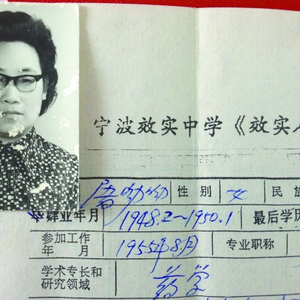 宁波效实中学《效实
屠呦呦 性别 女 民族
毕肄业年月 1948.2～1950.1 最后学历
参加工作年月 1955年8月 专业职称
学术专长和研究领域 药学